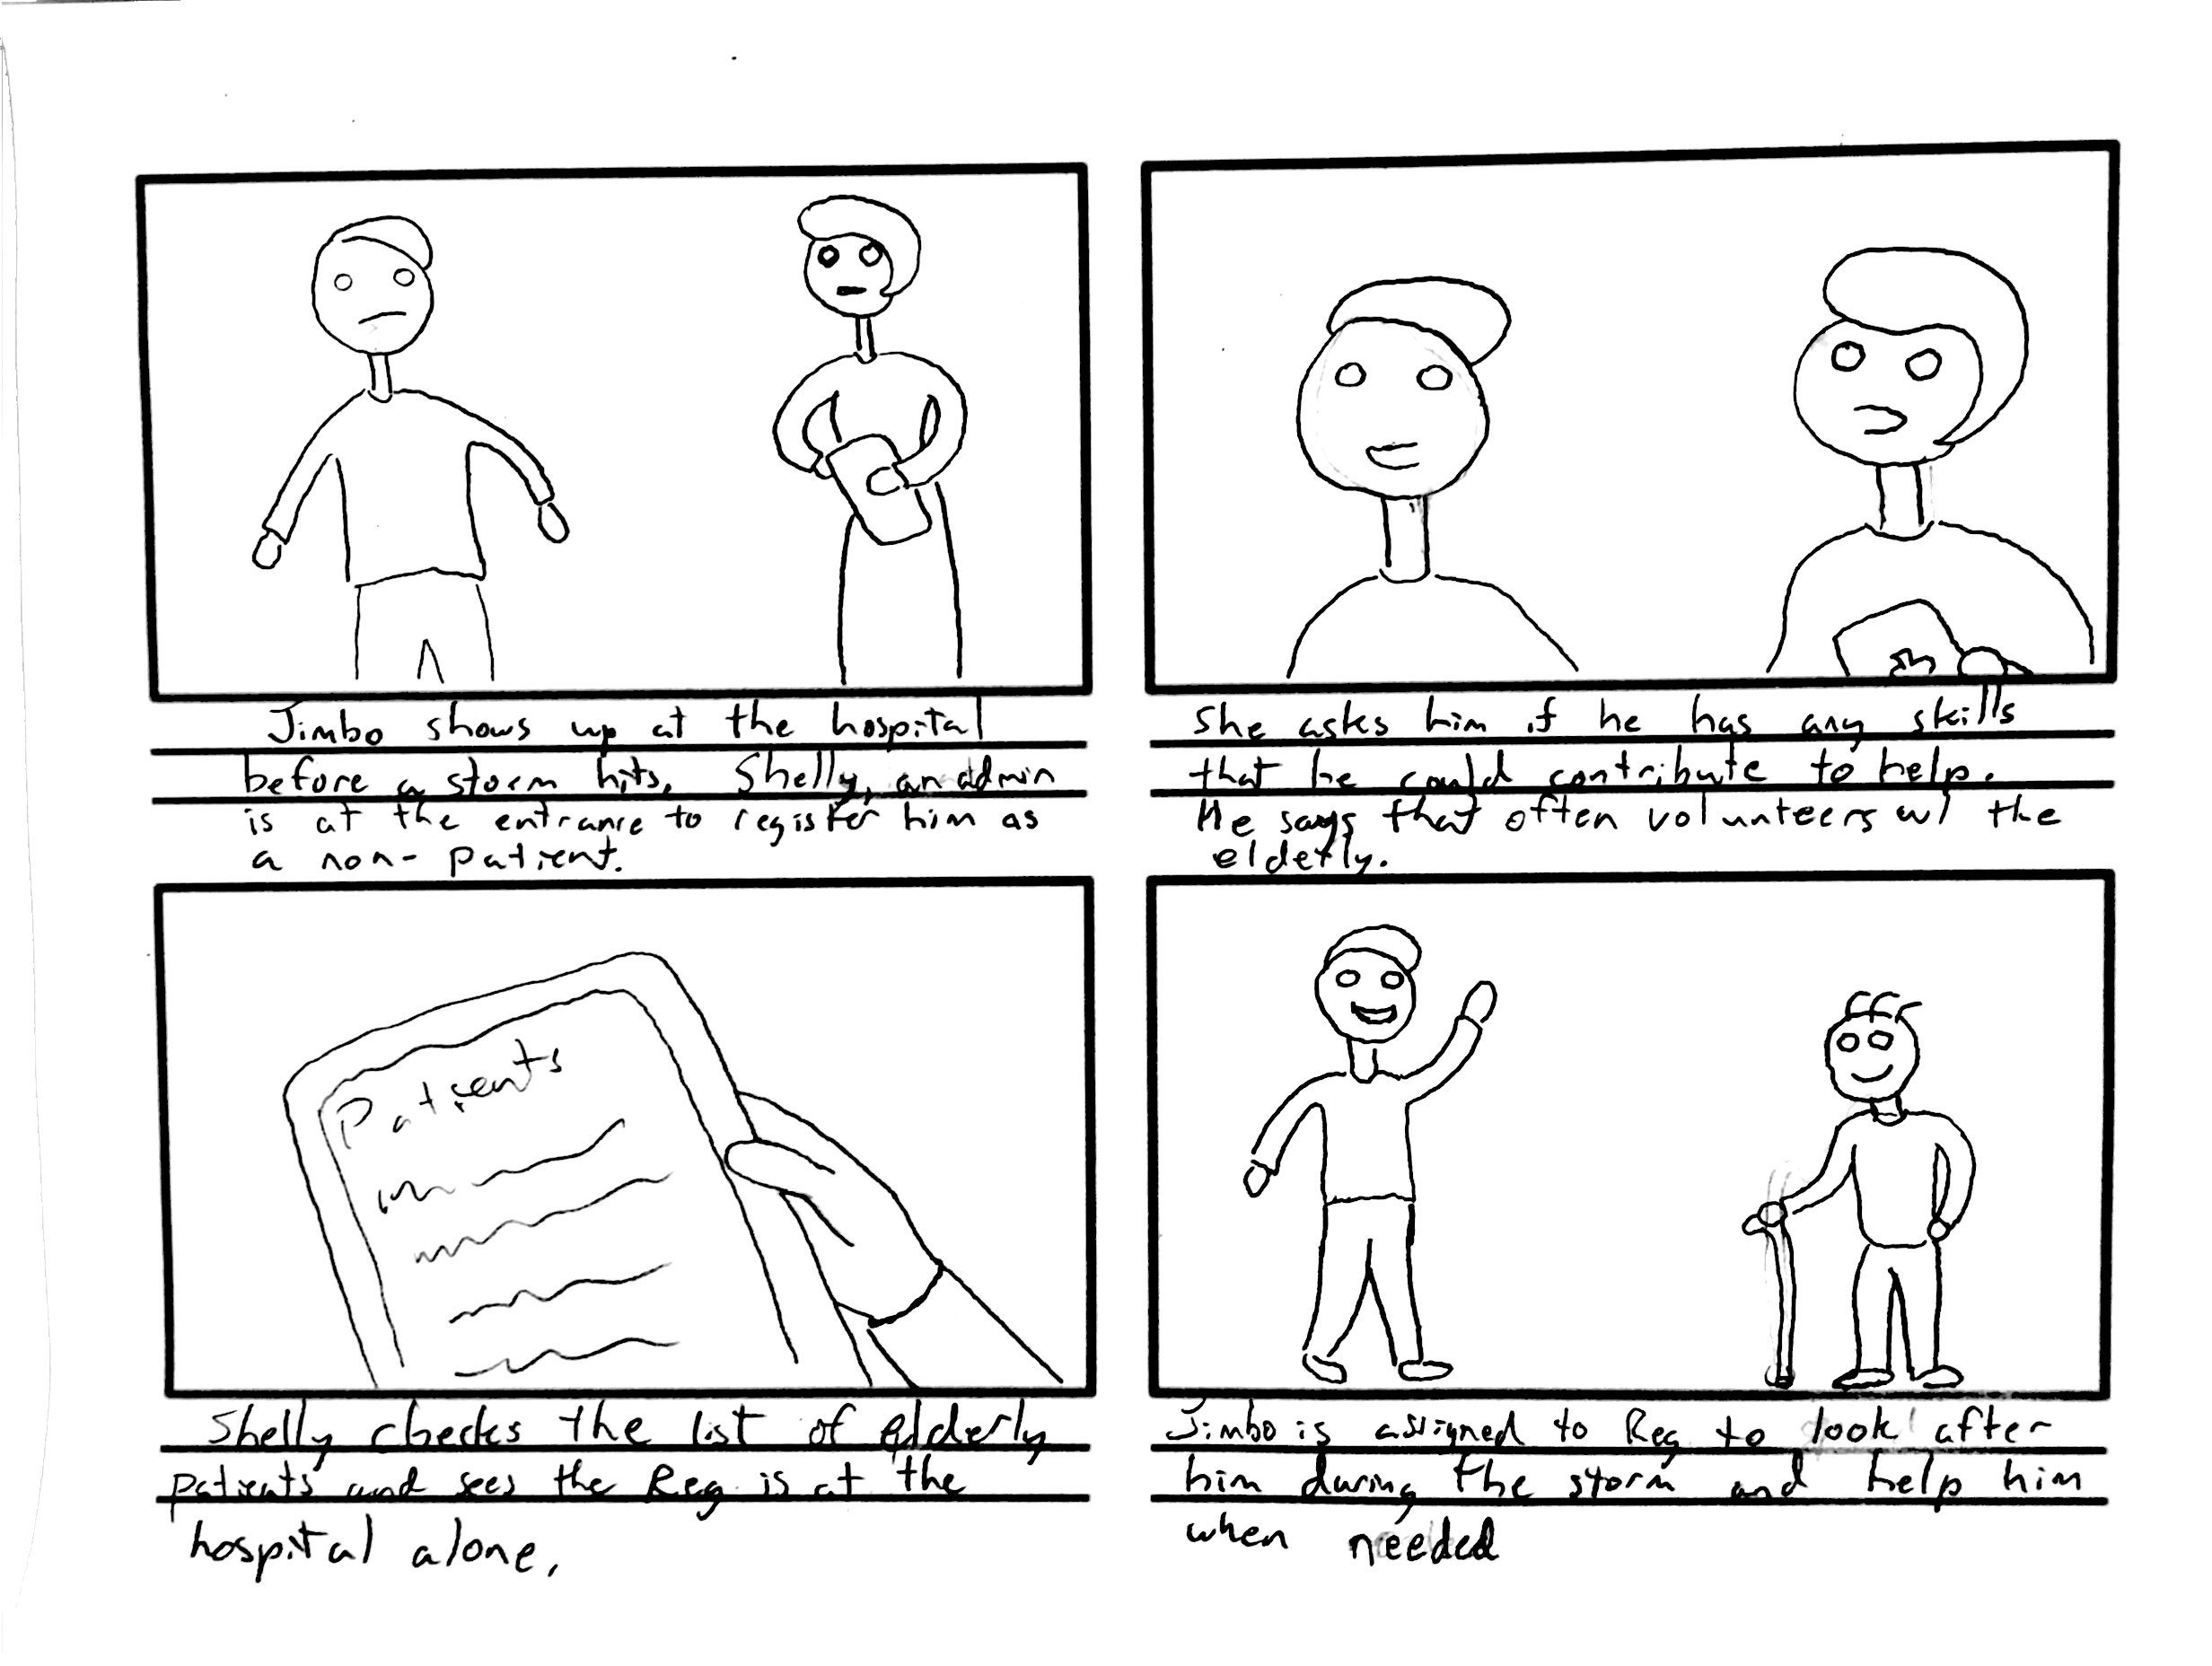 Jimbo shows up at the hospital
before a storm hits. Shelly, an admin
is at the entrance to register him as
a non-patient.
She asks him if he has any skills
that he could contribute to help.
He says that often volunteers w/ the
elderly.
Patients
Shelly checks the list of elderly
patients and sees the Reg is at the
hospital alone.
Jimbo is assigned to Reg to look after
him during the storm and help him
when needed